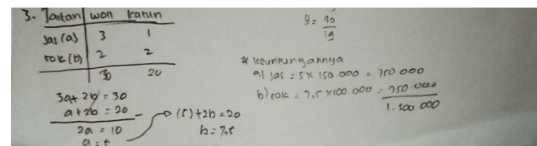 3. Jaitan won katun
Jas (a) 3 1
rok (b) 2 2
30 20
3a + 2b = 30
a + 2b = 20 -
2a = 10
a = 5
(5) + 2b = 20
b = 7,5
y = 10
19
* keuntungannya
a) Jas = 5 x 150.000 = 750 000
b) rok = 7,5 x 100.000 = 750.000
1.500 000